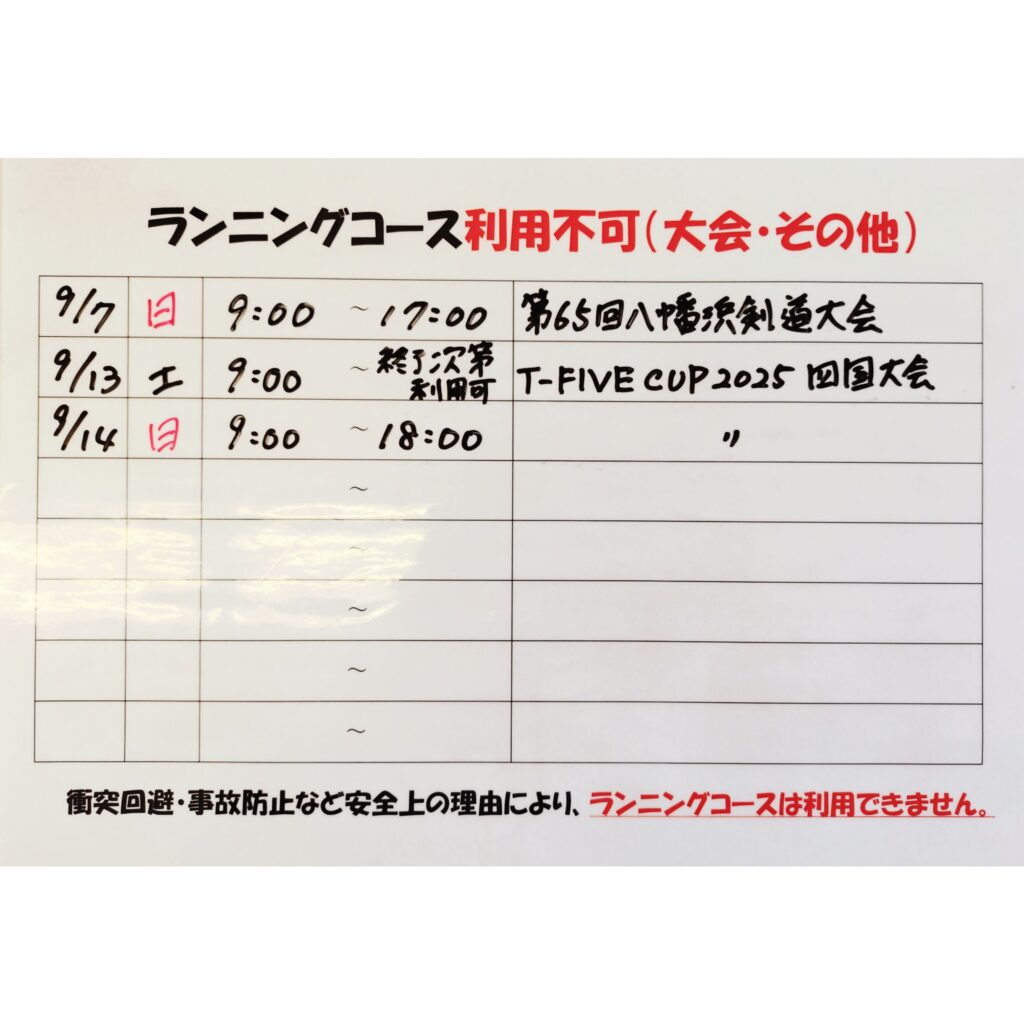 ランニングコース利用不可(大会・その他)
9/7 日 9:00 ~ 17:00 第65回八幡浜剣道大会
9/13 土 9:00 ~ 終了次第利用可 T-FIVE CUP 2025 四国大会
9/14 日 9:00 ~ 18:00 〃
~
~
~
~
~
衝突回避・事故防止など安全上の理由により、ランニングコースは利用できません。